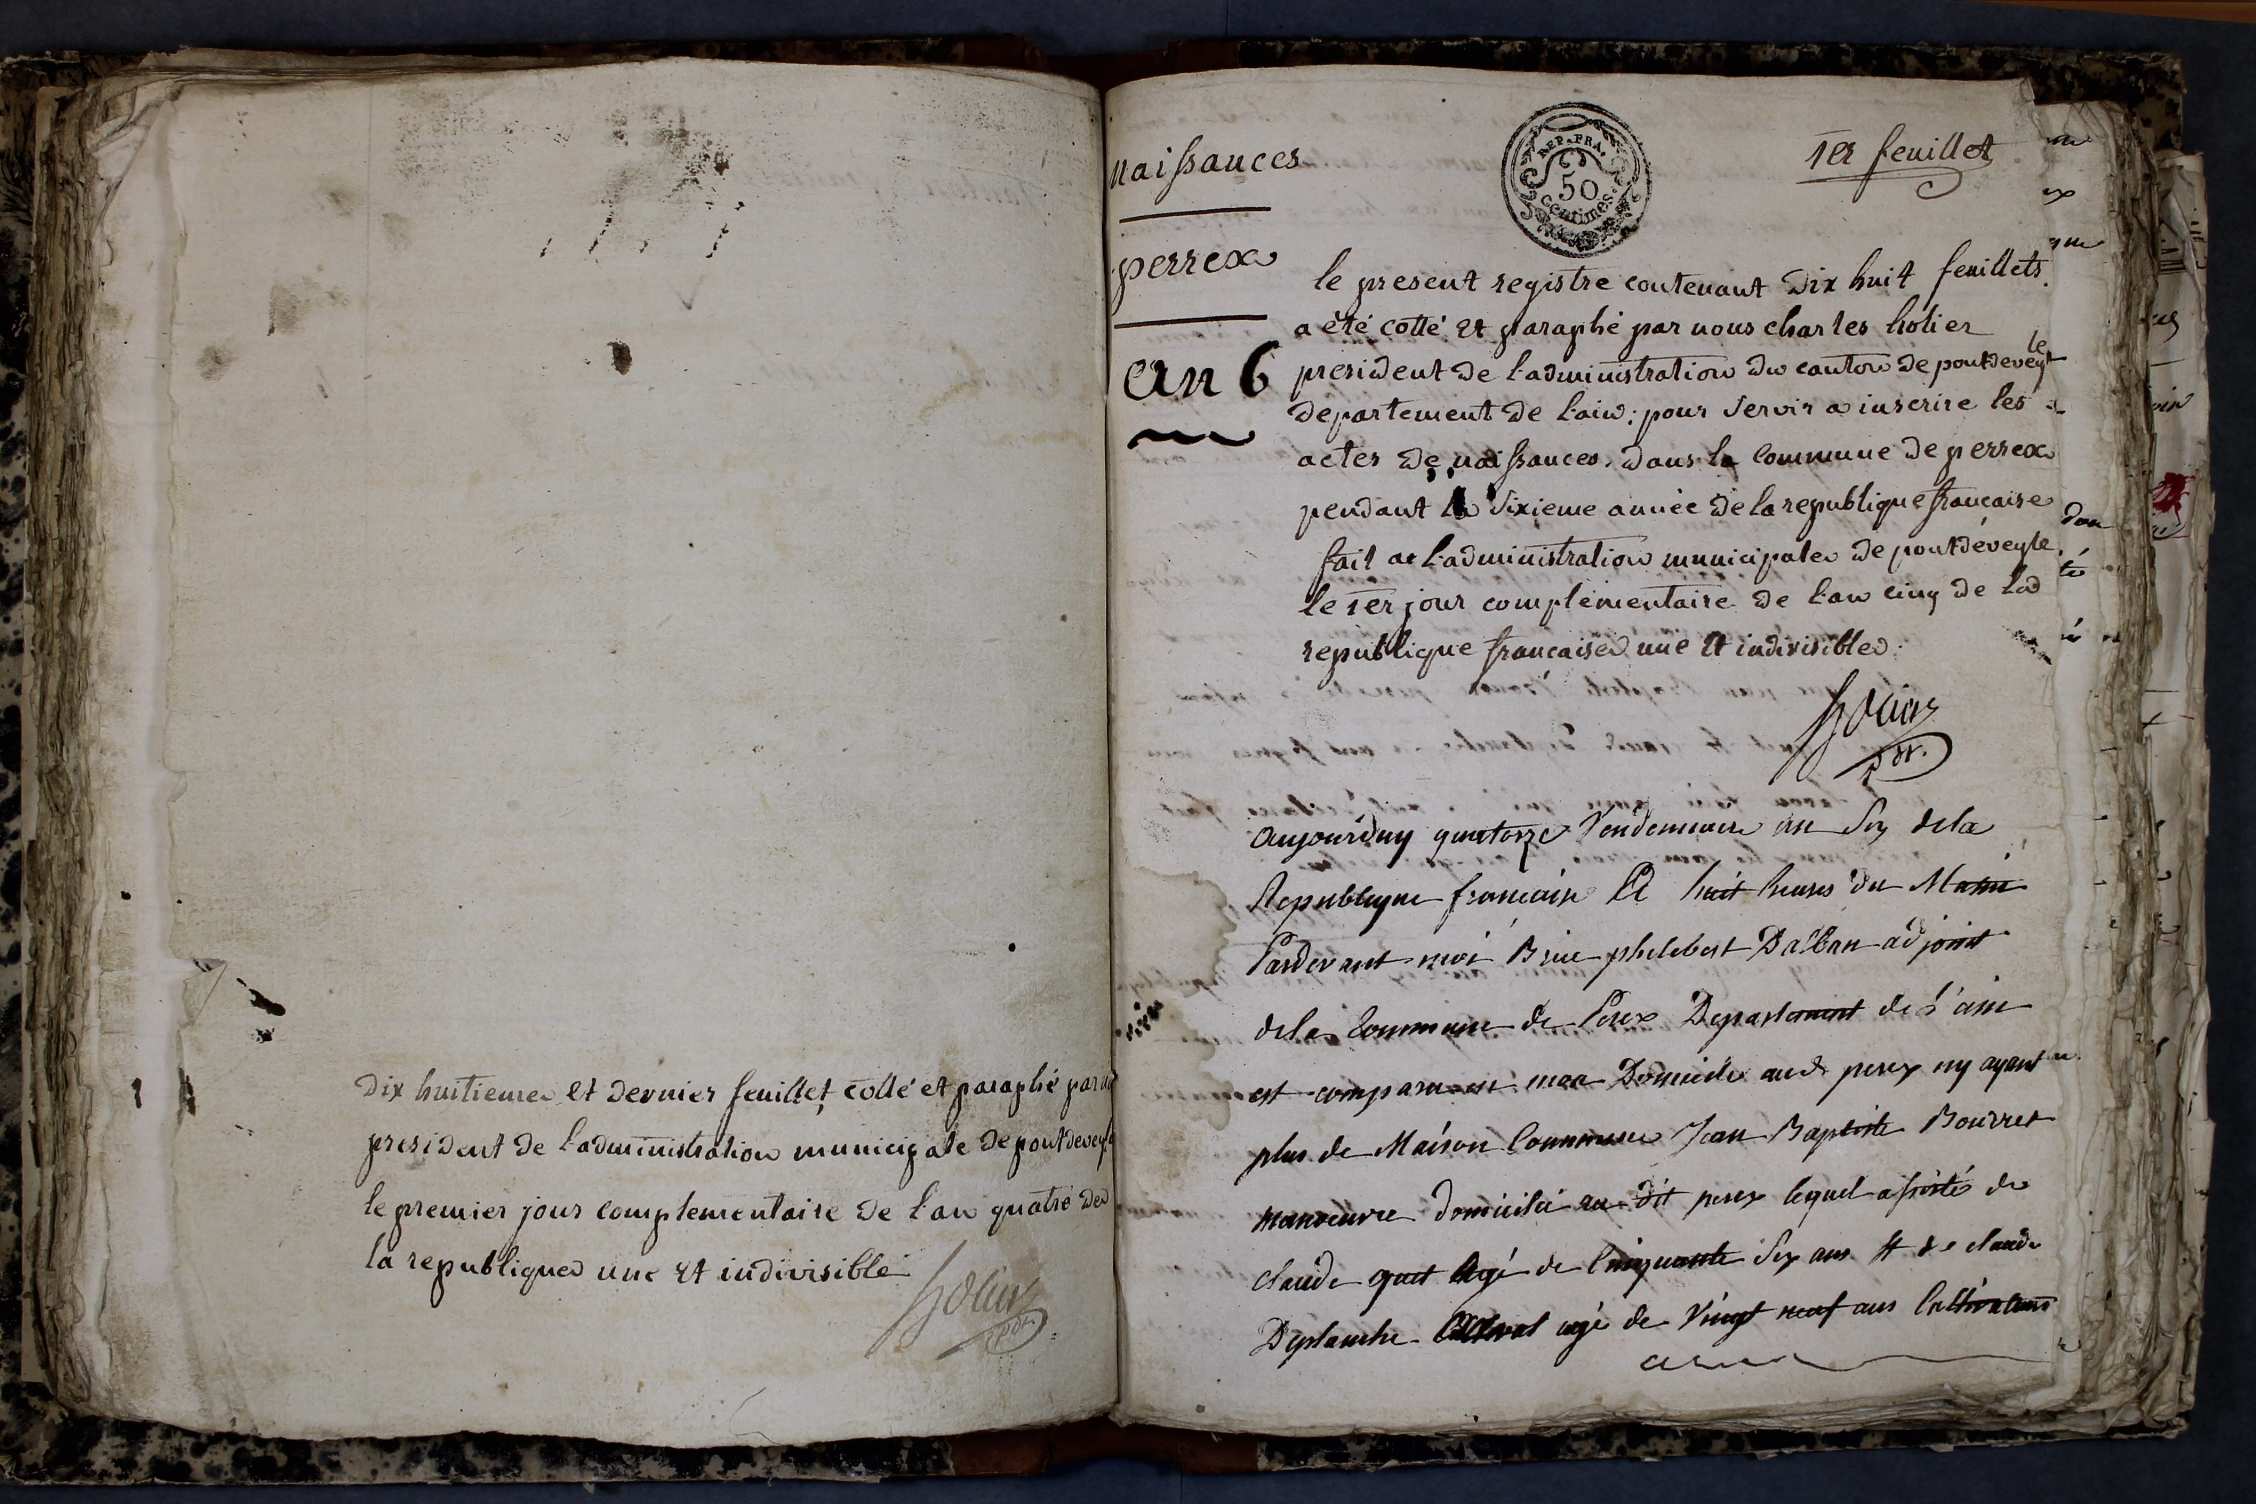 Dix huitieme et dernier feuillet collé et paraphé par
president de l'administration municipale de pontdeveyle
le premier jour complementaire de l'an quatre de
la republique une et indivisible
holier
pdt.
naissances
perrex
an 6
REP. FRA.
50
centimes.
1er feuillet
le present registre contenant Dix huit feuillets
a été cotté et paraphé par nous charles holier
president de l'administration du canton de pontdeveyle
departement de l'ain: pour servir a inscrire les
actes de naissances, dans la commune de perrex
pendant la sixieme année de la republique francaise
fait a l'administration municipale de pontdeveyle,
le 1er jour complementaire de l'an cinq de la
republique francaise une et indivisible.
holier
pdt.
aujourduy quatorze Vendemiaire an six dela
Republique francaise a huit heures du Matin
Pardevant moi Brice philebert Dalban adjoint
dela Commune de Perex Departement de l'ain
est comparu en mon Domicile aud perex ny ayant
plus de Maison Commune Jean Baptiste Bourret
manoeuvre domicilié au dit perex lequel assisté de
claude guet agé de Cinquante six ans et de claude
Deplanche agé de Vingt neuf ans Cultivateurs